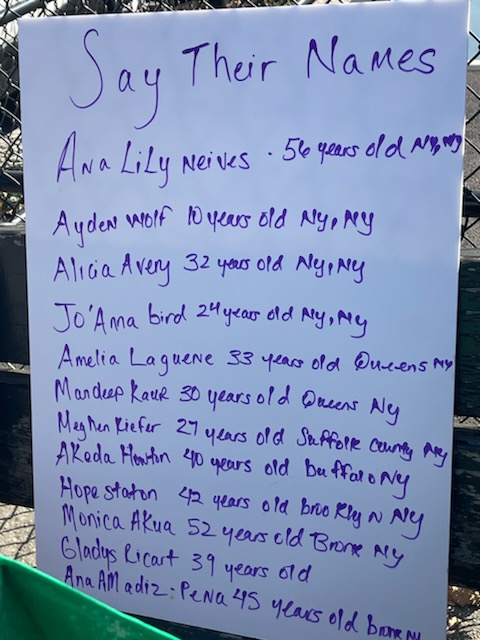 Say Their Names
Ana Lily Neives - 56 years old Ny, Ny
Ayden Wolf 10 years old Ny, Ny
Alicia Avery 32 years old Ny, Ny
Jo'Anna bird 24 years old Ny, Ny
Amelia Laguene 33 years old Queens Ny
Mandeep Kaur 30 years old Queens Ny
Meghen Kiefer 27 years old Suffolk county Ny
AKeda 40 years old buffalo Ny
Hope staton 42 years old brooklyn Ny
Monica AKua 52 years old Bronx Ny
Gladys Ricart 39 years old
Ana AMadiz: Pena 45 years old bronx Ny